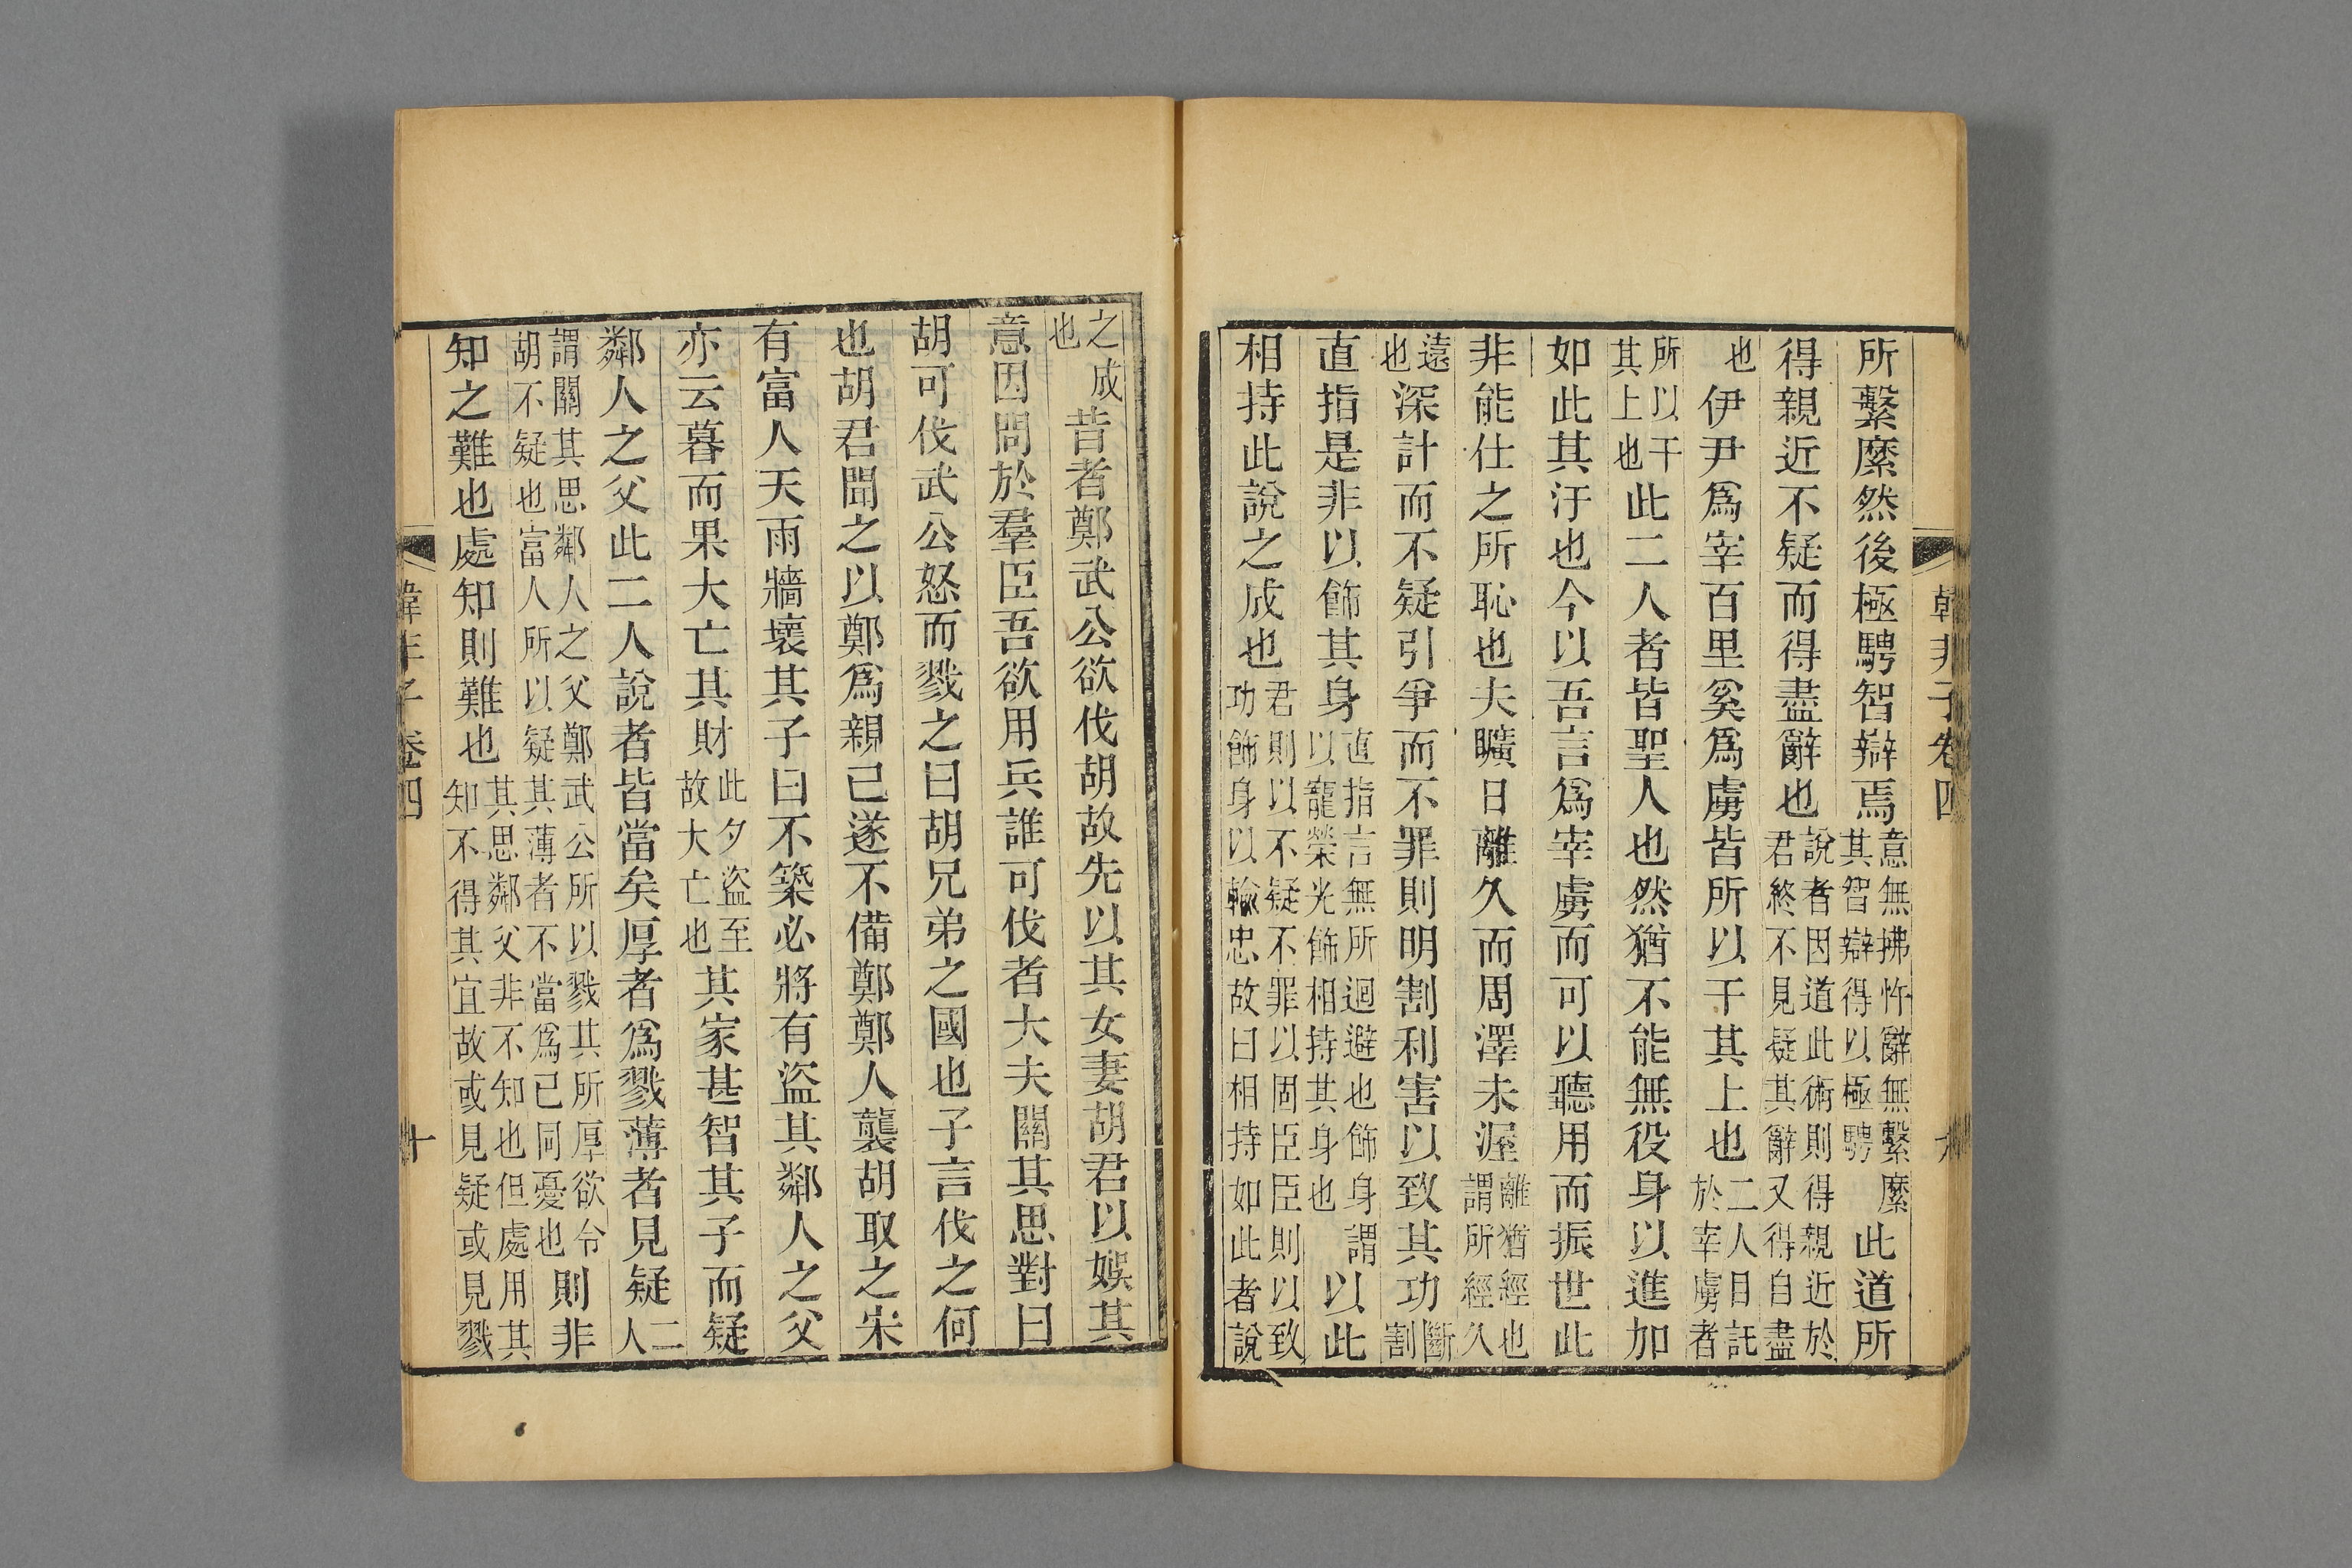 韓非子卷四
所繫縻然後極騁智辯焉意無拂忤辭無繫縻其智辯得以極騁此道所
得親近不疑而得盡辭也說者因道此術則得親近於君終不見疑其辭又得自盡
也伊尹爲宰百里奚爲虜皆所以干其上也二人自託於宰虜者
所以干其上也此二人者皆聖人也然猶不能無役身以進加
如此其汙也今以吾言爲宰虜而可以聽用而振世此
非能仕之所恥也夫曠日離久而周澤未渥離猶經也謂所經久
遠也深計而不疑引爭而不罪則明割利害以致其功斷割
直指是非以飾其身直指言無所迴避也飾身謂以寵榮光飾相持其身也以此
相持此說之成也君則以不疑不罪以固臣臣則以致功飾身以輸忠故曰相持如此者說
之成也昔者鄭武公欲伐胡故先以其女妻胡君以娛其
意因問於羣臣吾欲用兵誰可伐者大夫關其思對曰
胡可伐武公怒而戮之曰胡兄弟之國也子言伐之何
也胡君聞之以鄭爲親己遂不備鄭鄭人襲胡取之宋
有富人天雨牆壞其子曰不築必將有盜其鄰人之父
亦云暮而果大亡其財此夕盜至故大亡也其家甚智其子而疑
鄰人之父此二人說者皆當矣厚者爲戮薄者見疑二人
謂關其思鄰人之父鄭武公所以戮其所厚欲令胡不疑也富人所以疑其薄者不當爲已同憂也則非
知之難也處知則難也其思鄰父非不知也但處用其知不得其宜故或見疑或見戮
韓非子卷四
十